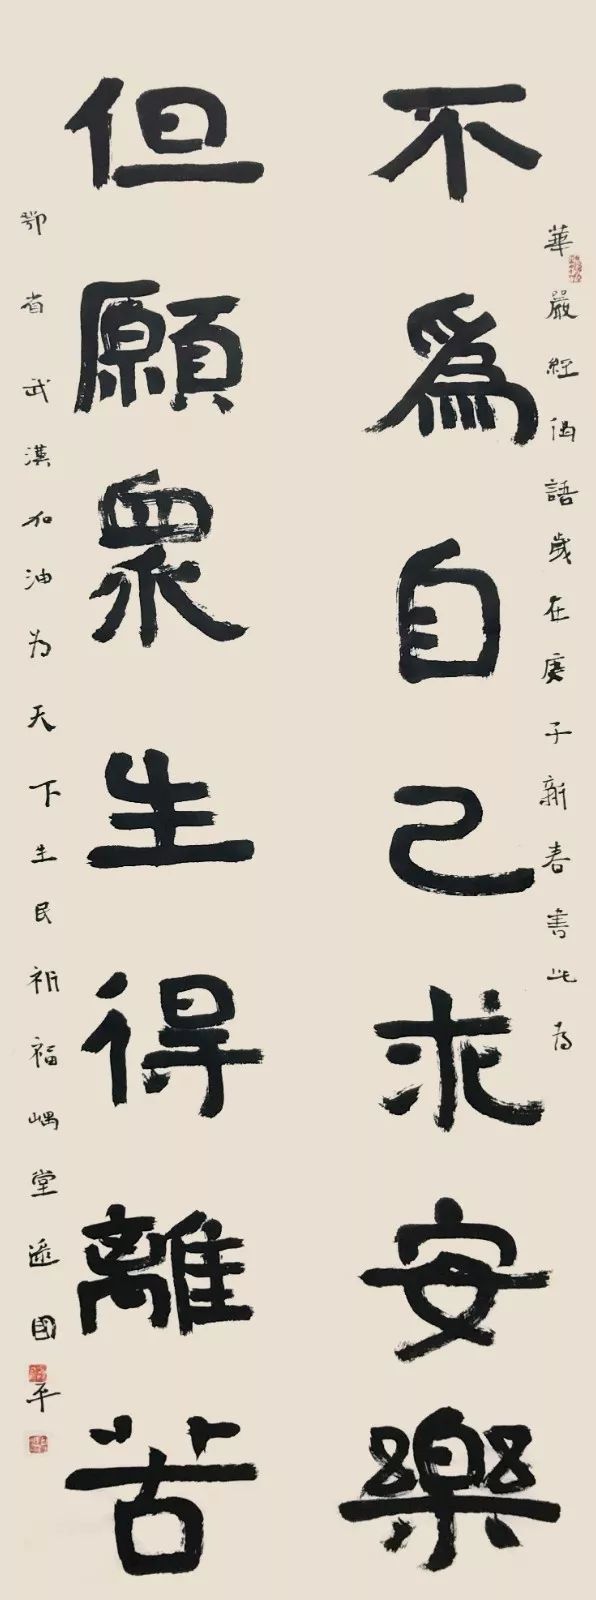 華嚴經偈語歲在庚子新春書此為
不爲自己求安樂
但願眾生得離苦
鄂省武漢加油为天下生民祈福嵎堂逯國平